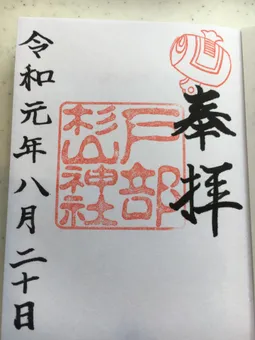 奉拝
戸部
杉山神社
令和元年八月二十日